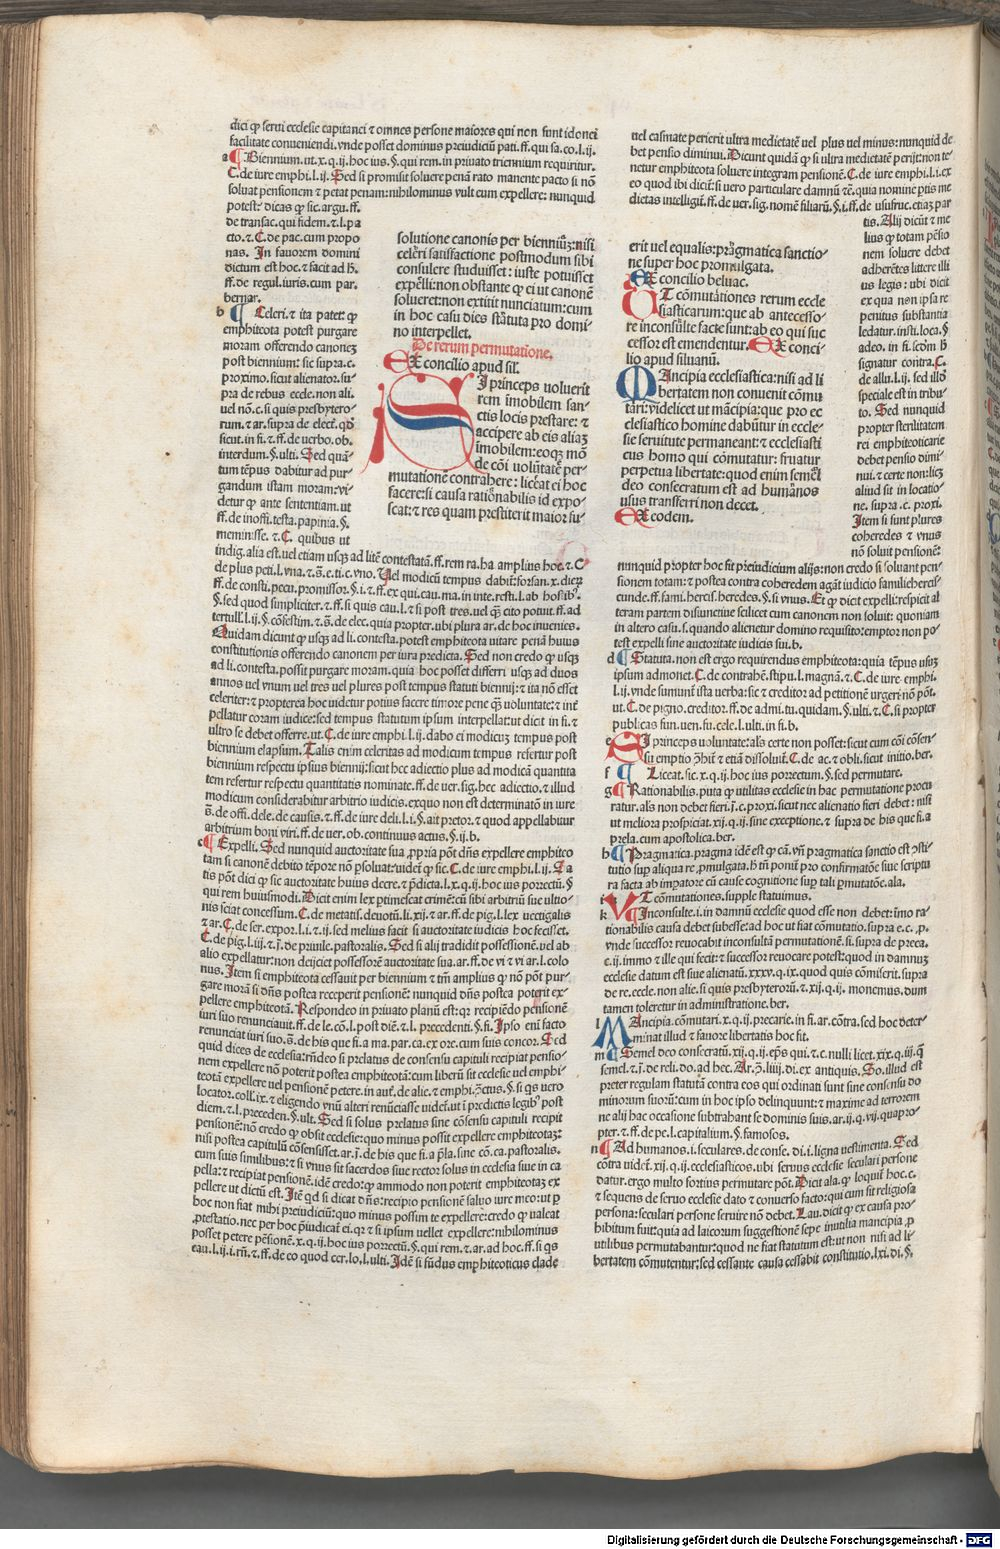 dici ꝙ serui ecclesie capitanei ⁊ omnes persone maiores qui non sunt idonei
facilitate conueniendi. vnde posset dominus preiudiciũ pati. ff. qui sa. co. l. ij.
a ¶ Biennium. ut. x. q. ij. hoc ius. §. qui rem. in priuato triennium requiritur.
C. de iure emphi. l. ij. Sed si promisit soluere penã rato manente pacto si nõ
soluat pensionem ⁊ petat penam: nihilominus vult eum expellere: nunquid
potest: dicas ꝙ sic. argu. ff.
de transac. qui fidem. ⁊. l. pa
cto. ⁊. C. de pac. cum propo
nas. In fauorem domini
dictum est hoc. ⁊ facit ad h̃.
ff. de regul. iuris. cum par.
bernar.
b ¶ Celeri. ⁊ ita patet: ꝙ
emphiteota potest purgare
moram offerendo canonem
post biennium: sic supra. e.
proximo. sicut alienator. su-
pra de rebus eccle. non ali.
uel nõ. c. si quis presbytero-
rum. ⁊ ar. supra de elect. qđ
sicut. in fi. ⁊. ff. de uerbo. ob.
interdum. §. ulti. Sed quã-
tum tẽpus dabitur ad pur-
gandum istam moram: vi-
detur ꝙ ante sententiam. ut
ff. de inoffi. testa. papinia. §.
meminisse. ⁊. C. quibus ut
indig. alia est. uel etiam usꝙ ad litẽ contestatã. ff. rem ra. ha. amplius hoc. ⁊. C
de plus peti. l. vna. ⁊. s̃. e. ti. c. vno. Uel modicũ tempus dabit̃: forsan. x. dierum
ff. de consti. pecu. promissor. §. i. ⁊. ff. ex qui. cau. ma. in inte. resti. l. ab hostibꝰ.
§. sed quod simpliciter. ⁊. ff. si quis cau. l. ⁊ si post tres. uel ꝙ̃ cito potuit. ff. ad
tertull. l. ij. §. cõfestim. ⁊. s̃. de elec. quia propter. ubi plura ar. de hoc inuenies.
Quidam dicunt ꝙ usꝙ ad li. contesta. potest emphiteota uitare penã huius
constitutionis offerendo canonem per iura predicta. Sed non credo ꝙ usꝙ
ad li. contesta. possit purgare moram. quia hoc posset differri usꝙ ad duos
annos uel vnum uel tres uel plures post tempus statuti biennij: ⁊ ita nõ esset
celeriter: ⁊ propterea hoc uidetur potius facere timore pene ꝙ̃ uoluntate: ⁊ int̃
pellatur coram iudice: sed tempus statutum ipsum interpellat: ut dicit in fi. ⁊
ultro se debet offerre. ut. C. de iure emphi. l. ij. dabo ei modicum tempus post
biennium elapsum. Talis enim celeritas ad modicum tempus refertur post
biennium respectu ipsius biennij: sicut hec adiectio plus ad modicã quantita
tem refertur respectu quantitatis nominate. ff. de uer. sig. hec adiectio. ⁊ illud
modicum considerabitur arbitrio iudicis. exquo non est determinatũ in iure
s̃. de offi. dele. de causis. ⁊. ff. de iure deli. l. i. §. ait pretor. ⁊ quod appellabitur
arbitrium boni viri. ff. de uer. ob. continuus actus. §. ij. b.
c ¶ Expelli. Sed nunquid auctoritate sua ꝓpria põt dñs expellere emphiteo
tam si canonẽ debito tẽpore nõ ꝑsoluat: uidet̃ ꝙ sic. C. de iure emphi. l. ij. Fa
tis põt dici ꝙ sic auctoritate huius decre. ⁊ p̃dicta. l. x. q. ij. hoc ius porrectũ. §
qui rem huiusmodi. Dicit enim lex ptimescat crimẽ: cũ sibi arbitriũ sue ultio-
nis sciat concessum. C. de metatis. deuotũ. li. xij. ⁊ ar. ff. de pig. l. lex uectigalis
⁊ ar. C. de ser. expor. l. i. ⁊. ij. sed melius facit si auctoritate iudicis hoc fecisset.
C. de pig. l. iij. ⁊. j̃. de priuile. pastoralis. Sed si alij tradidit possessionẽ. uel ab
alio expellatur: non deijciet possessorẽ auctoritate sua. ar. ff. de vi ⁊ vi ar. l. colo
nus. Item si emphiteota cessauit per biennium ⁊ tm̃ amplius ꝙ nõ põt pur-
gare morã si dñs postea receperit pensionẽ: nunquid dñs postea poterit ex-
pellere emphiteotã. Respondeo in priuato planũ est: ꝙ recipiẽdo pensionẽ
iuri suo renunciauit. ff. de le. cõ. l. post diẽ. ⁊. l. precedenti. §. fi. Ipso enĩ facto
renunciat iuri suo. s̃. de his que fi. a ma. par. ca. ex ore. cum suis concor. Sed
quid dices de ecclesia: rñdeo si prelatus de consensu capituli recipiat pensio-
nem expellere nõ poterit postea emphiteotã: cum liberũ sit ecclesie uel emphi-
teotã expellere uel pensionẽ petere. in autẽ. de alie. ⁊ emphi. ꝑctus. §. si ꝗs uero
locator. coll. ix. ⁊ eligendo vnũ alteri renũciasse videt̃. ut ĩ predictis legibꝰ post
diem. ⁊. l. preceden. §. ult. Sed si solus prelatus sine cõsensu capituli recipit
pensionẽ: nõ credo ꝙ obsit ecclesie: quo minus possit expellere emphiteotam:
nisi postea capitulũ cõsensisset. ar. j̃. de his que fi. a p̃la. sine cõ. ca. pastoralis.
cum suis similibus: ⁊ si vnus sit sacerdos siue rector solus in ecclesia siue in ca
pella: ⁊ recipiat pensionẽ. idẽ credo: ꝙ ammodo non poterit emphiteotam ex
pellere ut dictũ est. Itẽ qđ si dicat dñs: recipio pensionẽ saluo iure meo: ut ꝑ
hoc non fiat mihi preiudiciũ: quo minus possim te expellere: credo ꝙ ualeat
ꝓtestatio. nec per hoc p̃iudicat̃ ei. q̃ ⁊ si ipsum uellet expellere: nihilominus
posset petere pẽsionẽ. x. q. ij. hoc ius porrectũ. §. qui rem. ⁊ ar. ad hoc. ff. si ꝗs
cau. l. ij. i. rñ. ⁊. ff. de eo quod cer. lo. l. ulti. Idẽ si fũdus emphiteoticus clade
solutione canonis per bienniũ: nisi
celeri satisfactione postmodum sibi
consulere studuisset: iuste potuisset
expelli: non obstante ꝙ ei ut canonẽ
solueret: non extitit nunciatum: cum
in hoc casu dies statuta pro domi-
no interpellet.
De rerum permutatione.
EX concilio apud sil.
SI princeps uoluerit
rem imobilem san-
ctis locis prestare: ⁊
accipere ab eis aliam
imobilem: eoꝙ mõ
de cõi uolũtate per-
mutationẽ contrahere: liceat ei hoc
facere: si causa rationabilis id expo-
scat: ⁊ res quam prestiterit maior fu-
erit uel equalis: pragmatica sanctio-
ne super hoc promulgata.
EX concilio beluac.
UT cõmutationes rerum eccle
siasticarum: que ab antecesso-
re inconsulte facte sunt: ab eo qui suc
cessor est emendentur. EX conci-
lio apud siluanũ.
MAncipia ecclesiastica: nisi ad li
bertatem non conuenit cõmu
tari: videlicet ut mãcipia: que pro ec
clesiastico homine dabũtur in eccle-
sie seruitute permaneant: ⁊ ecclesiasti
cus homo qui cõmutatur: fruatur
perpetua libertate: quod enim semel
deo consecratum est ad humanos
usus transferri non decet.
EX eodem.
uel casmate perierit ultra medietatẽ uel plus uel minus: nunquid de
bet pensio diminui. Dicunt quidã ꝙ si ultra medietatẽ perijt: non te-
netur emphiteota soluere integram pensionẽ. C. de iure emphi. l. i. ex
eo quod ibi dicit̃: si uero particulare damnũ ⁊c̃. quia nomine ptis me
dietas intelligit̃. ff. de ver. sig. nomẽ filiarũ. §. i. ff. de usufruc. etiam par
tis. Alij dicũt ꝙ me
lius ꝙ totam pẽsio
nem soluere debet
adherẽtes littere illi
us legis: ubi dicit
ex qua non ipsa re
penitus substantia
ledatur. insti. loca. §
adeo. in fi. secom h̃
signatur contra. C.
de allu. l. ij. sed illõ
speciale est in tribu-
to. Sed nunquid
propter sterilitatem
rei emphiteoticarie
debet pensio dimi-
nui. ⁊ certe non: licet
aliud sit in locatio-
ne. supra. c. proxi.
Item si sunt plures
coheredes ⁊ vnus
nõ soluit pensionẽ:
nunquid propter hoc fit preiudicium alijs: non credo si soluant pen-
sionem totam: ⁊ postea contra coheredem agãt iudicio familieherci-
cunde. ff. fami. hercis. heredes. §. si vnus. Et ꝙ dicit expelli: respicit al
teram partem disiunctiue scilicet cum canonem non soluit: quoniam
in altero casu. s. quando alienetur domino requisito: emptor non po-
test expelli sine auctoritate iudicis sui. b.
d ¶ Statuta. non est ergo requirendus emphiteota: quia tẽpus usum
ipsum admonet. C. de contrahẽ. stipu. l. magnã. ⁊. C. de iure emphi.
l. ij. vnde sumunt̃ ista uerba: sic ⁊ creditor ad petitionẽ urgeri nõ põt.
ut. C. de pigno. creditor. ff. de admi. tu. quidam. §. ulti. ⁊. C. si propter
publicas fun. uen. fu. cele. l. ulti. in fi. b.
e SI princeps uoluntate: als certe non posset: sicut cum cõi cõsen-
su emptio ꝓhit̃ ⁊ etiã dissoluit̃. C. de ac. ⁊ obli. sicut initio. ber.
f ¶ Liceat. sic. x. q. ij. hoc ius porrectum. §. sed permutare.
g ¶ Rationabilis. puta ꝙ utilitas ecclesie in hac permutatione procu
ratur. als non debet fieri. j̃. e. proxi. sicut nec alienatio fieri debet: nisi
ut meliora prospiciat. xij. q. ij. sine exceptione. ⁊ supra de his que fi. a
prela. cum apostolica. ber.
h ¶ Pragmatica. pragma idẽ est ꝙ cã. vñ pragmatica sanctio est ꝯsti-
tutio sup̃ aliqua re ꝓmulgata. h̃ tm̃ ponũt̃ pro confirmatõe siue scriptu
ra facta ab impatore cũ cause cognitione sup̃ tali ꝑmutatõe. ala.
i VT cõmutationes. supple statuimus.
k ¶ Inconsulte. i. in damnũ ecclesie quod esse non debet: imo ra-
tionabilis causa debet subesse: ad hoc ut fiat cõmutatio. supra e. c. ꝓ.
vnde successor reuocabit inconsultã permutationẽ. si. supra de preca.
e. ij. immo ⁊ ille qui fecit: ⁊ successor reuocare potest: quod in damnum
ecclesie datum est siue alienatũ. xxxv. q. ix. quod quis cõmiserit. supra
de re. eccle. non alie. si quis presbyterorũ. ⁊. xij. q. ij. monemus. dum
tamen toleretur in administratione. ber.
l MAncipia. cõmutari. x. q. ij. precarie. in fi. ar. cõtra. sed hoc deter-
minat illud ⁊ fauore libertatis hoc fit.
m ¶ Semel deo consecratũ. xij. q. ij. ep̃s qui. ⁊. c. nulli licet. xix. q. iij. q̃
semel. ⁊. j̃. de reli. do. ad hec. Ar. ꝯ̃. liiij. di. ex antiquis. So. illud est
preter regulam statutã contra eos qui ordinati sunt sine consensu do
minorum suorũ: cum in hoc ipso delinquunt: ⁊ maxime ad terrorem
ne alij hac occasione subtrahant se dominis suis. ar. ij. q. vij. quapro-
pter. ⁊. ff. de pe. l. capitalium. §. famosos.
n ¶ Ad humanos. i. seculares. de conse. di. i. ligna uestimenta. Sed
cõtra uidet̃. xij. q. ij. ecclesiasticos. ubi seruus ecclesie seculari persone
datur. ergo multo fortius permutare põt. Dicit ala. ꝙ loquit̃ hoc. c.
⁊ sequens de seruo ecclesie dato ⁊ conuerso facto: qui cum sit religiosa
persona: seculari persone seruire nõ debet. Lau. dicit ꝙ ex causa pro-
hibitum fuit: quia ad laicorum suggestionẽ sepe inutilia mancipia ꝓ
utilibus permutabantur: quod ne fiat statutum est: ut non nisi ad li-
bertatem cõmutentur: sed cessante causa cessabit constitutio. lxi. di. §.
Digitalisierung gefördert durch die Deutsche Forschungsgemeinschaft - DFG